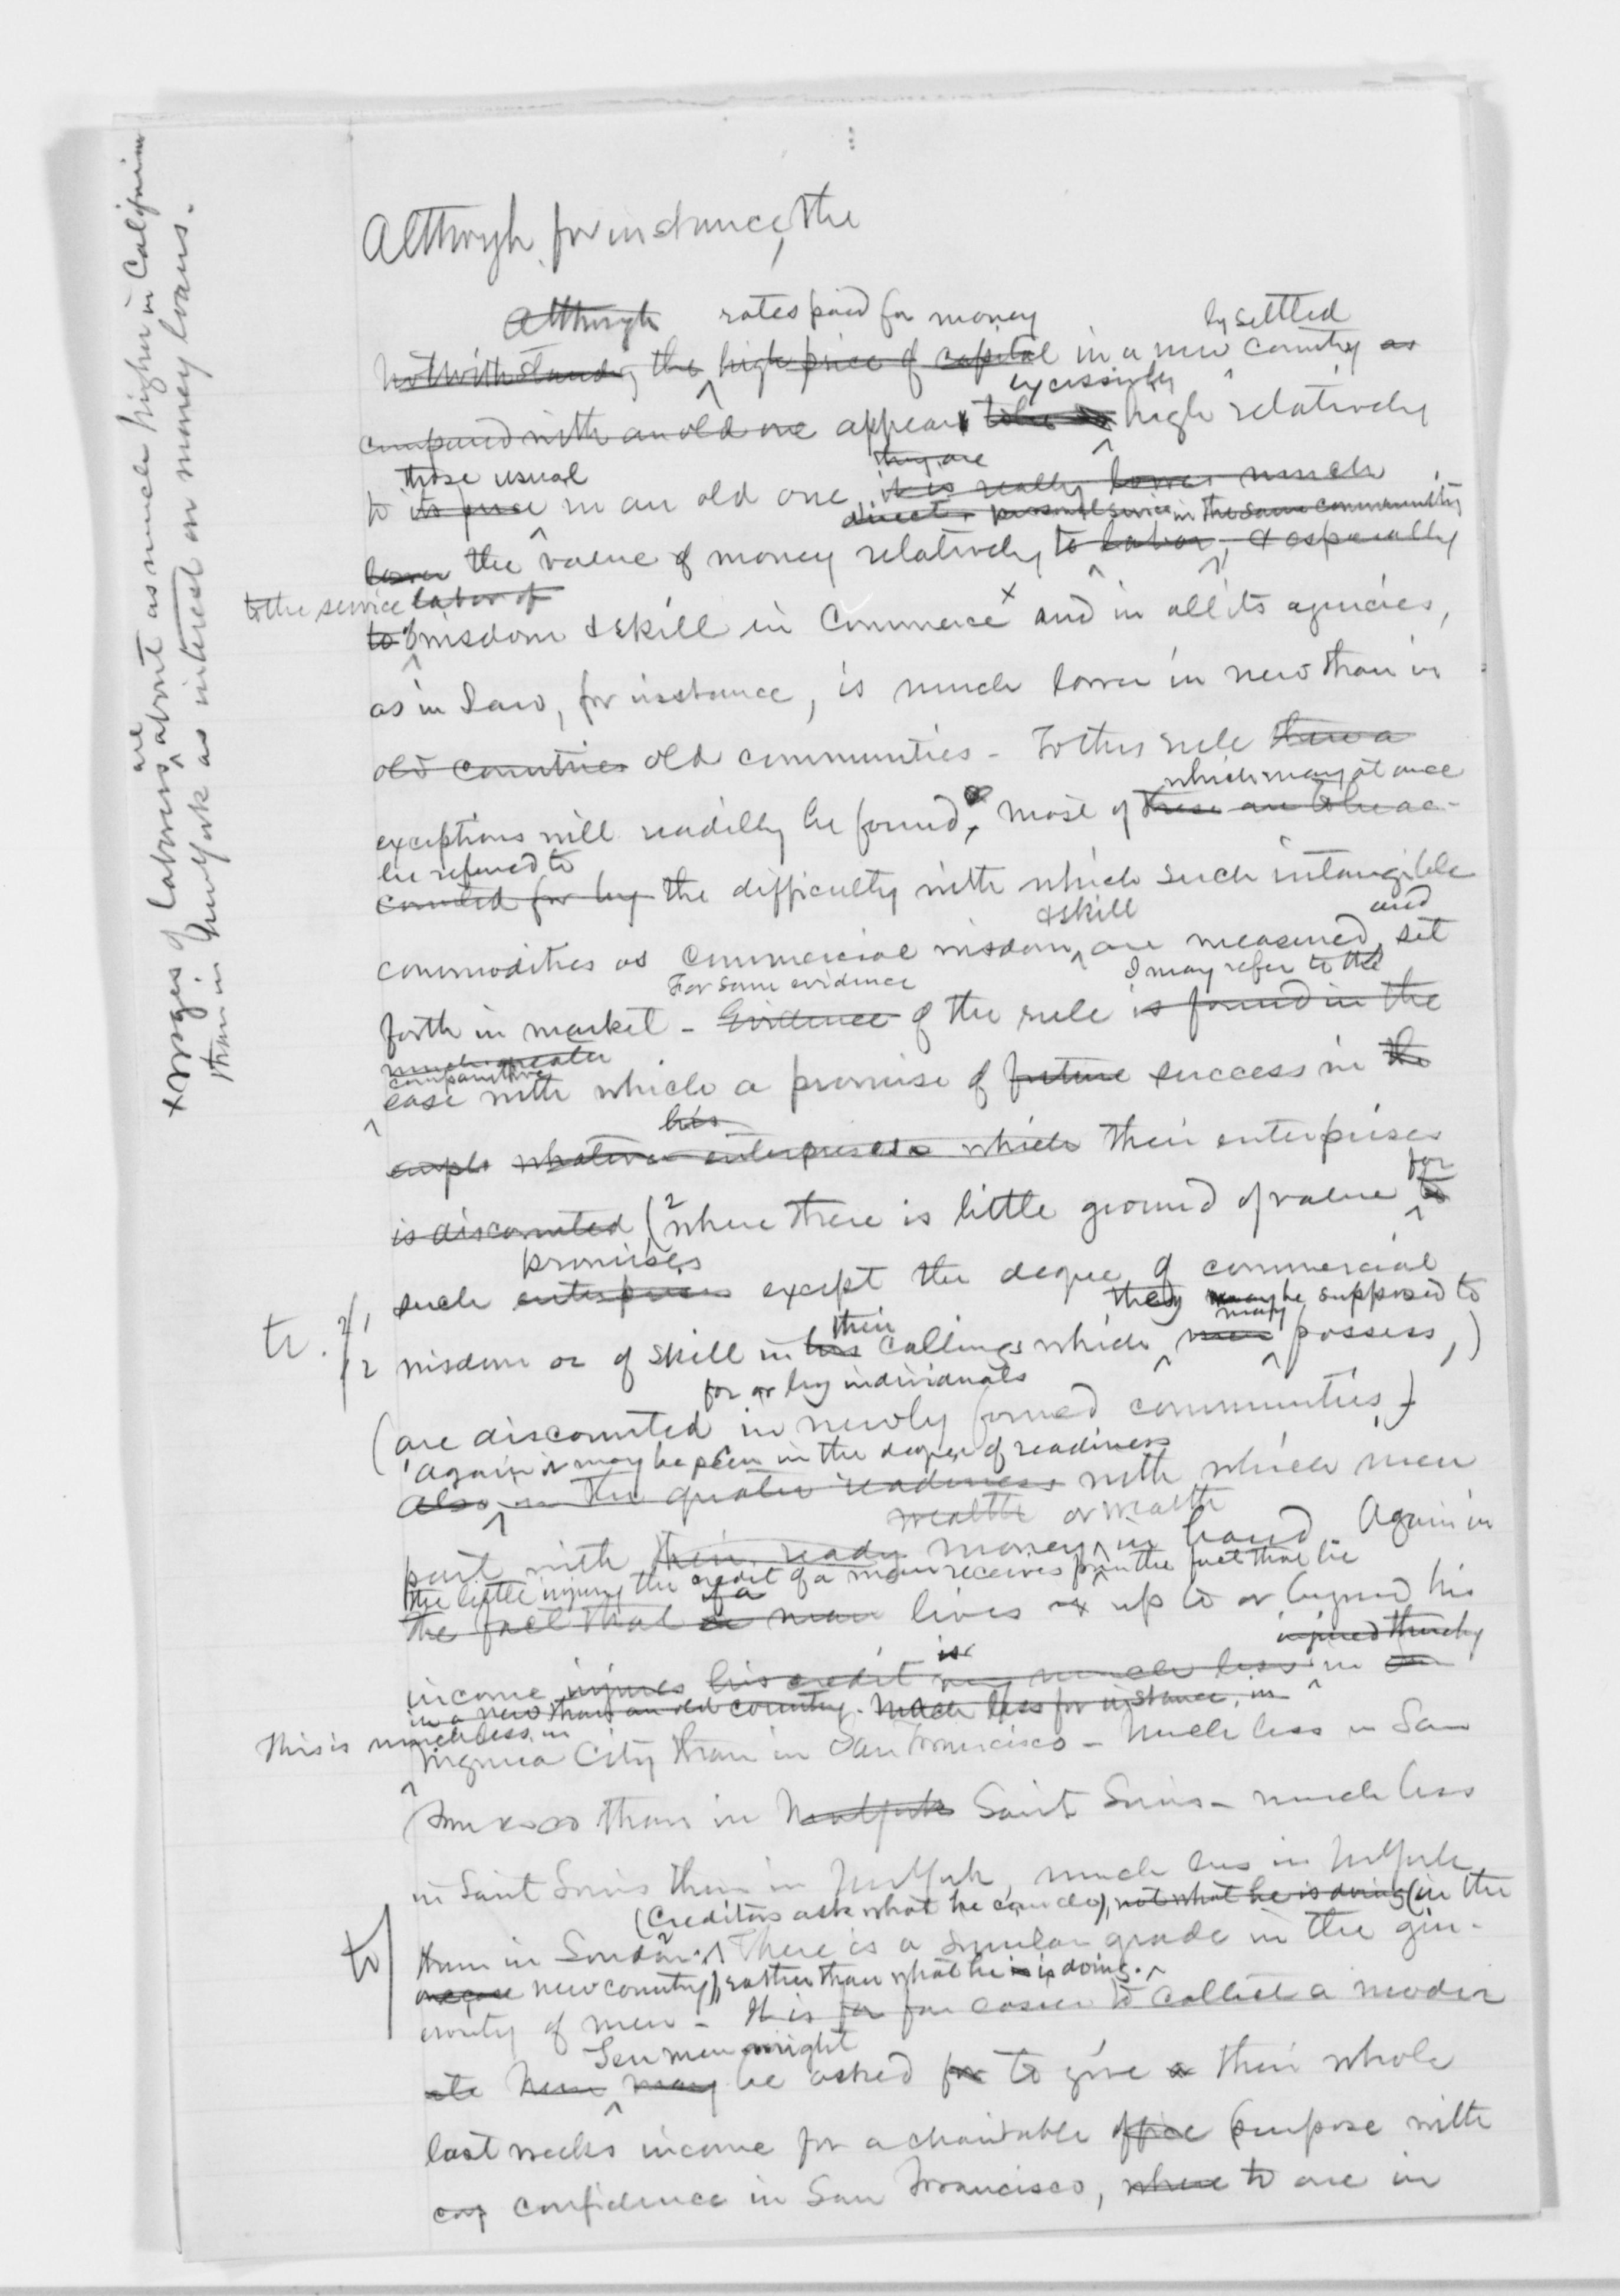 Although for instance, the
Although rates paid for money by settled
Notwithstanding the high price of capital in a new country as
excessively
compared with an old one appears to be so high relatively
those usual they are
to its price in an old one, it is really lower much
direct personal service in the same community
lower the value of money relatively to labor, & especially
to the service labor of
to of wisdom & skill in Commerce x and in all its agencies,
as in Law, for instance, is much lower in new than in
old countries old communities - To this rule there a
which may at once
exceptions will readily be found, most of these are to be ac-
be referred to
counted for by the difficulty with which such intangible
& skill and
commodities as commercial wisdom, are measured, set
For some evidence I may refer to the
forth in market - Evidence of the rule is found in the
much greater
comparative
ease with which a promise of future success in the
his
whatever enterprises which their enterprises
for
is discounted (2 where there is little ground of value to
promises
such enterprises except the degree of commercial
they may be supposed to
tr. 2/1
1/2 wisdom or of skill in his their callings which men may possess,)
for or by individuals
(are discounted in newly formed communities,)
Again it may be seen in the degree of readiness
Also, in the greater readiness with which men
wealth or wealth
part with their ready money, in hand. Again in
the little injury the credit of a man receives from the fact that he
the fact that if a man lives up to or beyond his
is injured thereby
income injures his credit very much less in an
in a new than an old country. Much less for instance, in
This is much less in
Virginia City than in San Francisco - Much less in San
Francisco than in NewYork Saint Louis - much less
in Saint Louis than in NewYork, much less in NewYork
(Creditors ask what he can do), not what he is doing (in the
than in London. There is a similar grade in the gen-
new country), rather than what he is doing.
erosity of men - It is far far easier to collect a moder
Ten men might
ate New may be asked for to give a their whole
last weeks income for a charitable office purpose with
confidence in San Francisco, where to one in
x Wages of laborers are about as much higher in California
than in New York as interest on money loans.